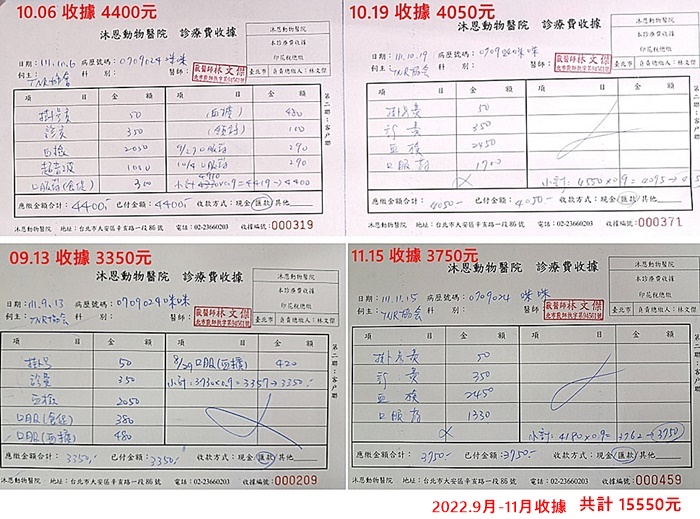 10.06 收據 4400元
沐恩動物醫院 診療費收據
沐恩動物醫院
本診療費收據
印花稅總繳
臺北市 負責總繳人:林文傑
日期:111.10.6 病歷號碼:0709024咪咪
飼主:TNR協會 科別: 醫師:
獸醫師林文傑
項 目 金 額 項 目 金 額
掛號費 50 (血檢) 480
診費 350 100
血檢 2050 9/27口服药 290
超音波 1010 10/4口服药 290
口服药 300 小計 ×0.9=4419→4400
應繳金額合計:4400- 已付金額:4400- 收款方式:現金/匯款/其他
沐恩動物醫院 地址:台北市大安區辛亥路一段86號 電話:02-23660203 收據編號:000319
第二聯:客戶聯
10.19 收據 4050元
沐恩動物醫院 診療費收據
沐恩動物醫院
本診療費收據
印花稅總繳
臺北市 負責總繳人:林文傑
日期:111.10.19 病歷號碼:0709024咪咪
飼主:TNR協會 科別: 醫師:
獸醫師林文傑
項 目 金 額 項 目 金 額
掛號費 50
診費 350
血檢 2450
口服药 1700
小計:4550×0.9=4095→
應繳金額合計:4050- 已付金額:4050- 收款方式:現金/匯款/其他
沐恩動物醫院 地址:台北市大安區辛亥路一段86號 電話:02-23660203 收據編號:000371
第二聯:客戶聯
09.13 收據 3350元
沐恩動物醫院 診療費收據
沐恩動物醫院
本診療費收據
印花稅總繳
臺北市 負責總繳人:林文傑
日期:111.9.13 病歷號碼:0709024咪咪
飼主:TNR協會 科別: 醫師:
獸醫師林文傑
項 目 金 額 項 目 金 額
掛號 50 8/29口服(血檢) 420
診費 350 小計:3730×0.9=3357→3350-
血檢 2050
口服 380
口服(血檢) 480
應繳金額合計:3350- 已付金額:3350- 收款方式:現金/匯款/其他
沐恩動物醫院 地址:台北市大安區辛亥路一段86號 電話:02-23660203 收據編號:000209
第二聯:客戶聯
11.15 收據 3750元
沐恩動物醫院 診療費收據
沐恩動物醫院
本診療費收據
印花稅總繳
臺北市 負責總繳人:林文傑
日期:111.11.15 病歷號碼:0709024 咪咪
飼主:TNR協會 科別: 醫師:
獸醫師林文傑
項 目 金 額 項 目 金 額
掛號費 50
診費 350
血檢 2450
口服药 1330
小計:4180×0.9=3762→3750
應繳金額合計:3750- 已付金額:3750- 收款方式:現金/匯款/其他
沐恩動物醫院 地址:台北市大安區辛亥路一段86號 電話:02-23660203 收據編號:000459
第二聯:客戶聯
2022.9月-11月收據 共計 15550元